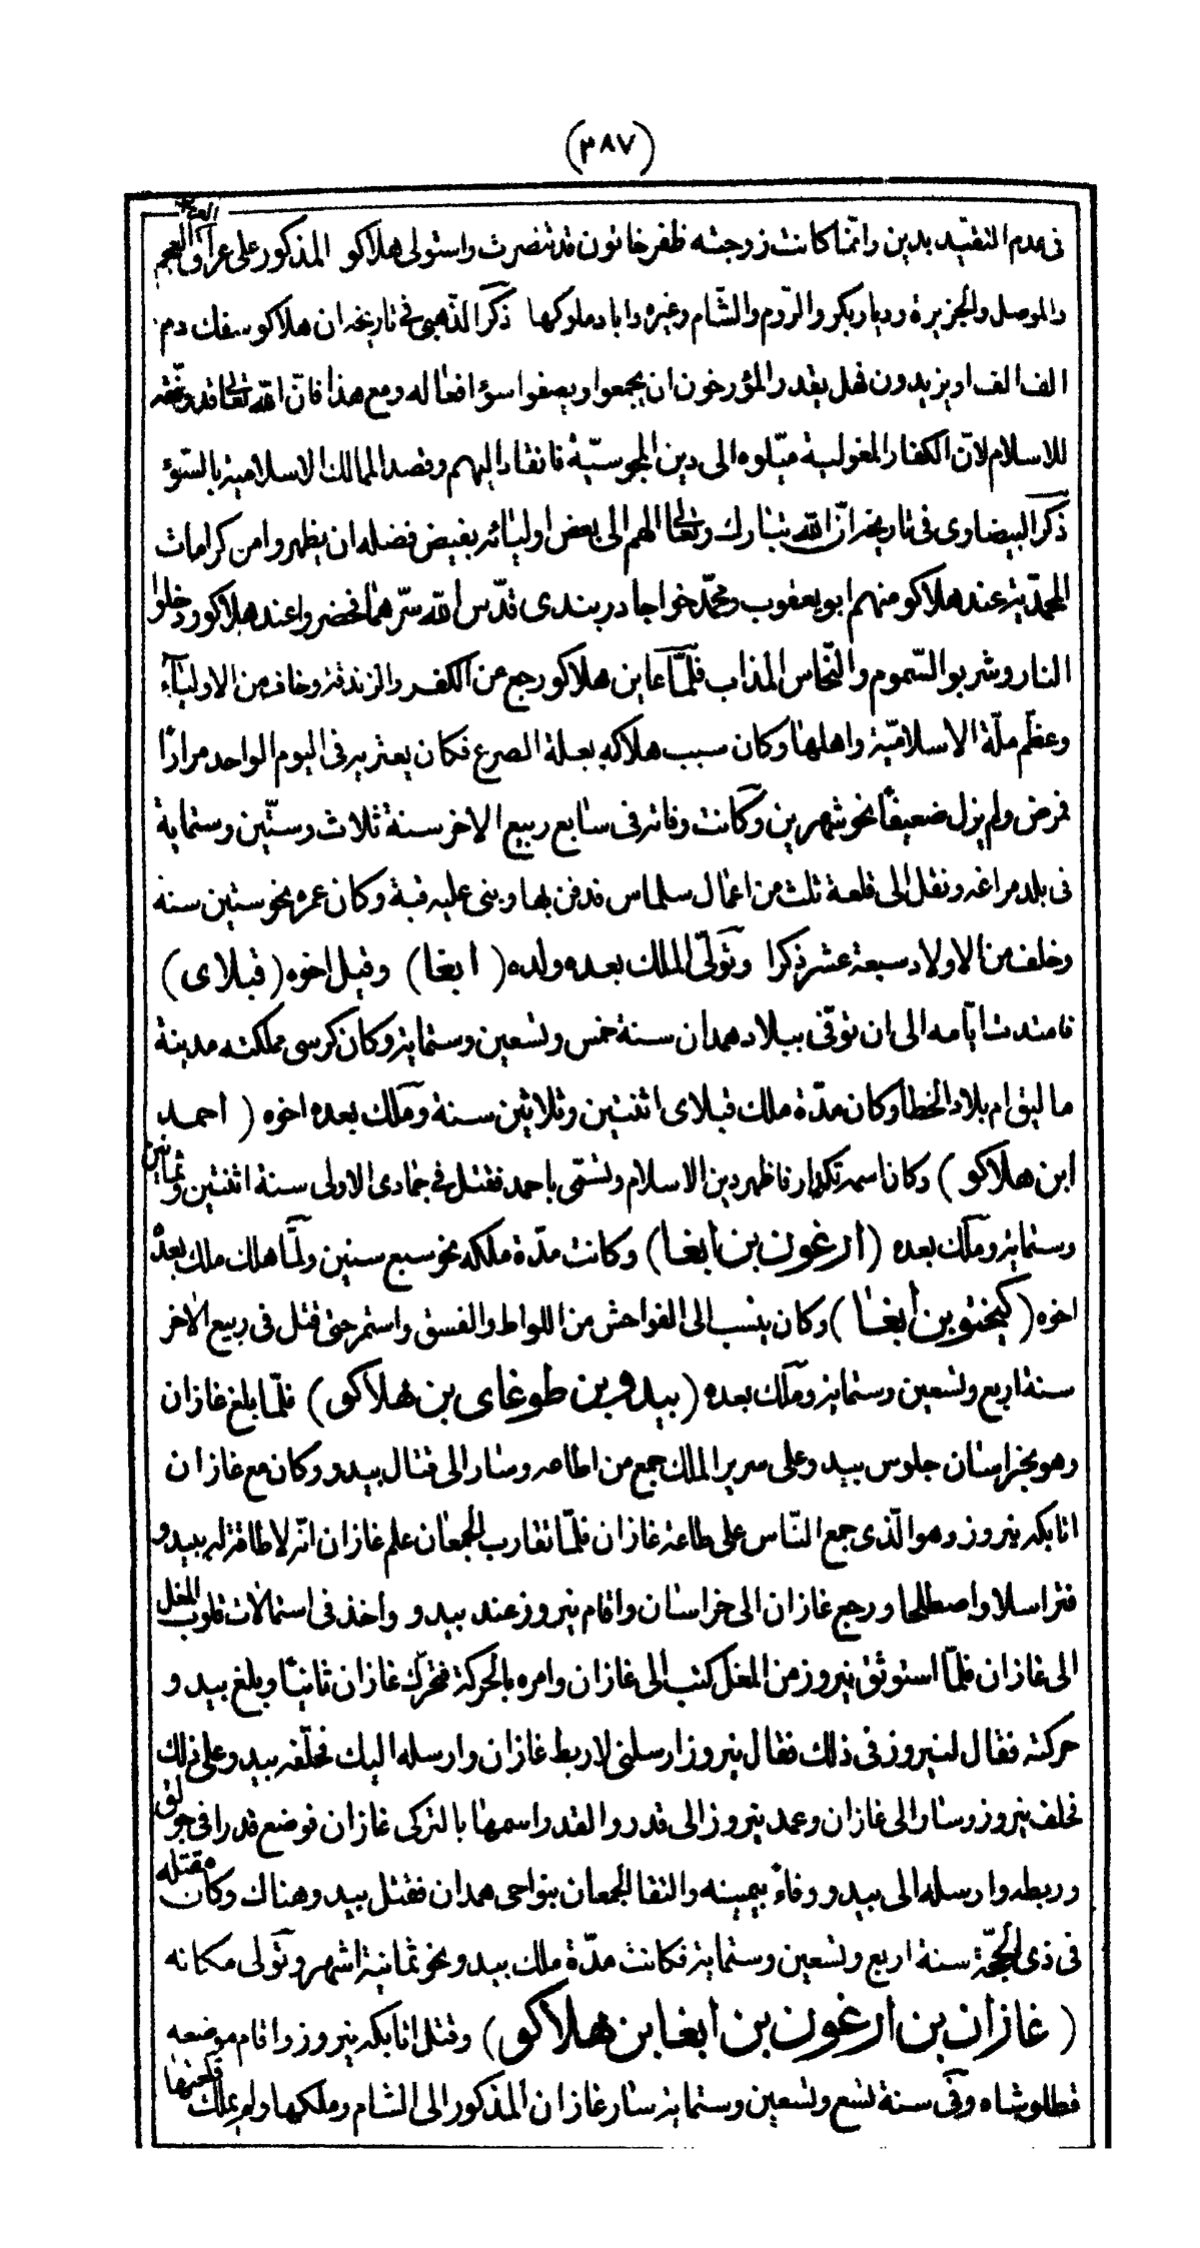 (٣٨٧)
فى عدم التقيد بدين وانما كانت زوجته ظفر خاتون قد تنصرت واستولى هلاكو المذكور على عراق العرب والعجم
والموصل والجزيرة وديار بكر والروم والشام وغيره واباد ملوكها ذكر الذهبى فى تاريخه ان هلاكو سفك دم
الف الف او يزيدون فهل يقدر المؤرخون ان يجمعوا ويصفوا سؤ افعاله ومع هذا فانّ الله تعالى قد وفقه
للاسلام لانّ الكفار المغولية ميّلوه الى دين المجوسيّة فانقاد اليهم وقصد الممالك الاسلامية بالسّوء
ذكر البيضاوى فى تاريخه انّ الله تبارك وتعالى الهم الى بعض اوليائه بفيض فضله ان يظهروا من كرامات
المحمّدية عند هلاكو منهم ابو يعقوب ومحمّد خواجا دربندى قدّس الله سرّهما فحضروا عند هلاكو ودخلوا
النار وشربوا السّموم والنّحاس المذاب فلمّا عاين هلاكو رجع من الكفر والزندقة وخاف من الاولياء
وعظّم ملّة الاسلاميّة واهلها وكان سبب هلاكه بعلة الصرع فكان يعتريه فى اليوم الواحد مرارًا
فمرض ولم يزل ضعيفًا نحو شهرين وكانت وفاته فى سابع ربيع الاخر سنة ثلاث وستّين وستماية
فى بلد مراغه ونقل الى قلعة ثلث من اعمال سلماس فدفن بها وبنى عليه قبة وكان عمره نحو ستين سنة
وخلف من الاولاد سبعة عشر ذكرا وتولّى الملك بعده ولده (ابغا) وقيل اخوه (قبلاى)
فامتدت ايّامه الى ان توفّى ببلاد همدان سنة خمس وتسعين وستماية وكان كرسى مملكته مدينة
ما ليق ام بلاد الخطا وكان مدّة ملك قبلاى اثنتين وثلاثين سنة وملك بعده اخوه (احمد
ابن هلاكو) وكان اسمه تكدار فاظهر دين الاسلام وتسمّى باحمد فقتل فى جمادى الاولى سنة اثنتين وثمانين
وستماية وملك بعده (ارغون بن ابغا) وكانت مدّة ملكه نحو سبع سنين ولمّا هلك ملك بعده
اخوه (كيختو بن ابغا) وكان ينسب الى الفواحش من اللواط والفسق واستمر حتى قتل فى ربيع الاخر
سنة اربع وتسعين وستماية وملك بعده (بيدو بن طوغاى بن هلاكو) فلمّا بلغ غازان
وهو بخراسان جلوس بيدو على سرير الملك جمع من اطاعه وسار الى قتال بيدو وكان مع غازان
اتابكه نيروز وهو الّذى جمع النّاس على طاعة غازان فلمّا تقارب الجمعان علم غازان انّه لا طاقة له ببيدو
فتراسلا واصطلحا ورجع غازان الى خراسان واقام نيروز عند بيدو واخذ فى استمالات قلوب المغل
الى غازان فلمّا استوثق نيروز من المغل كتب الى غازان وامره بالحركة فتحرّك غازان ثانيًا وبلغ بيدو
حركته فقال لنيروز فى ذلك فقال نيروز ارسلنى لاربط غازان وارسله اليك فحلّفه بيدو على ذلك
فحلف نيروز وسار الى غازان وعمد نيروز الى قدر والقدر اسمها بالتركى غازان فوضع قدرا فى جولق
وربطه وارسله الى بيدو ووفاءً بيمينه والتقا الجمعان بنواحى همدان فقتل بيدو هناك وكان مقتله
فى ذى الحجّة سنة اربع وتسعين وستماية فكانت مدّة ملك بيدو نحو ثمانية اشهر وتولى مكانه
(غازان بن ارغون بن ابغا بن هلاكو) وقتل اتابكه نيروز واقام موضعه
قطلوشاه وفى سنة تسع وتسعين وستماية سار غازان المذكور الى الشام وملكها ولم يملك قلعتها